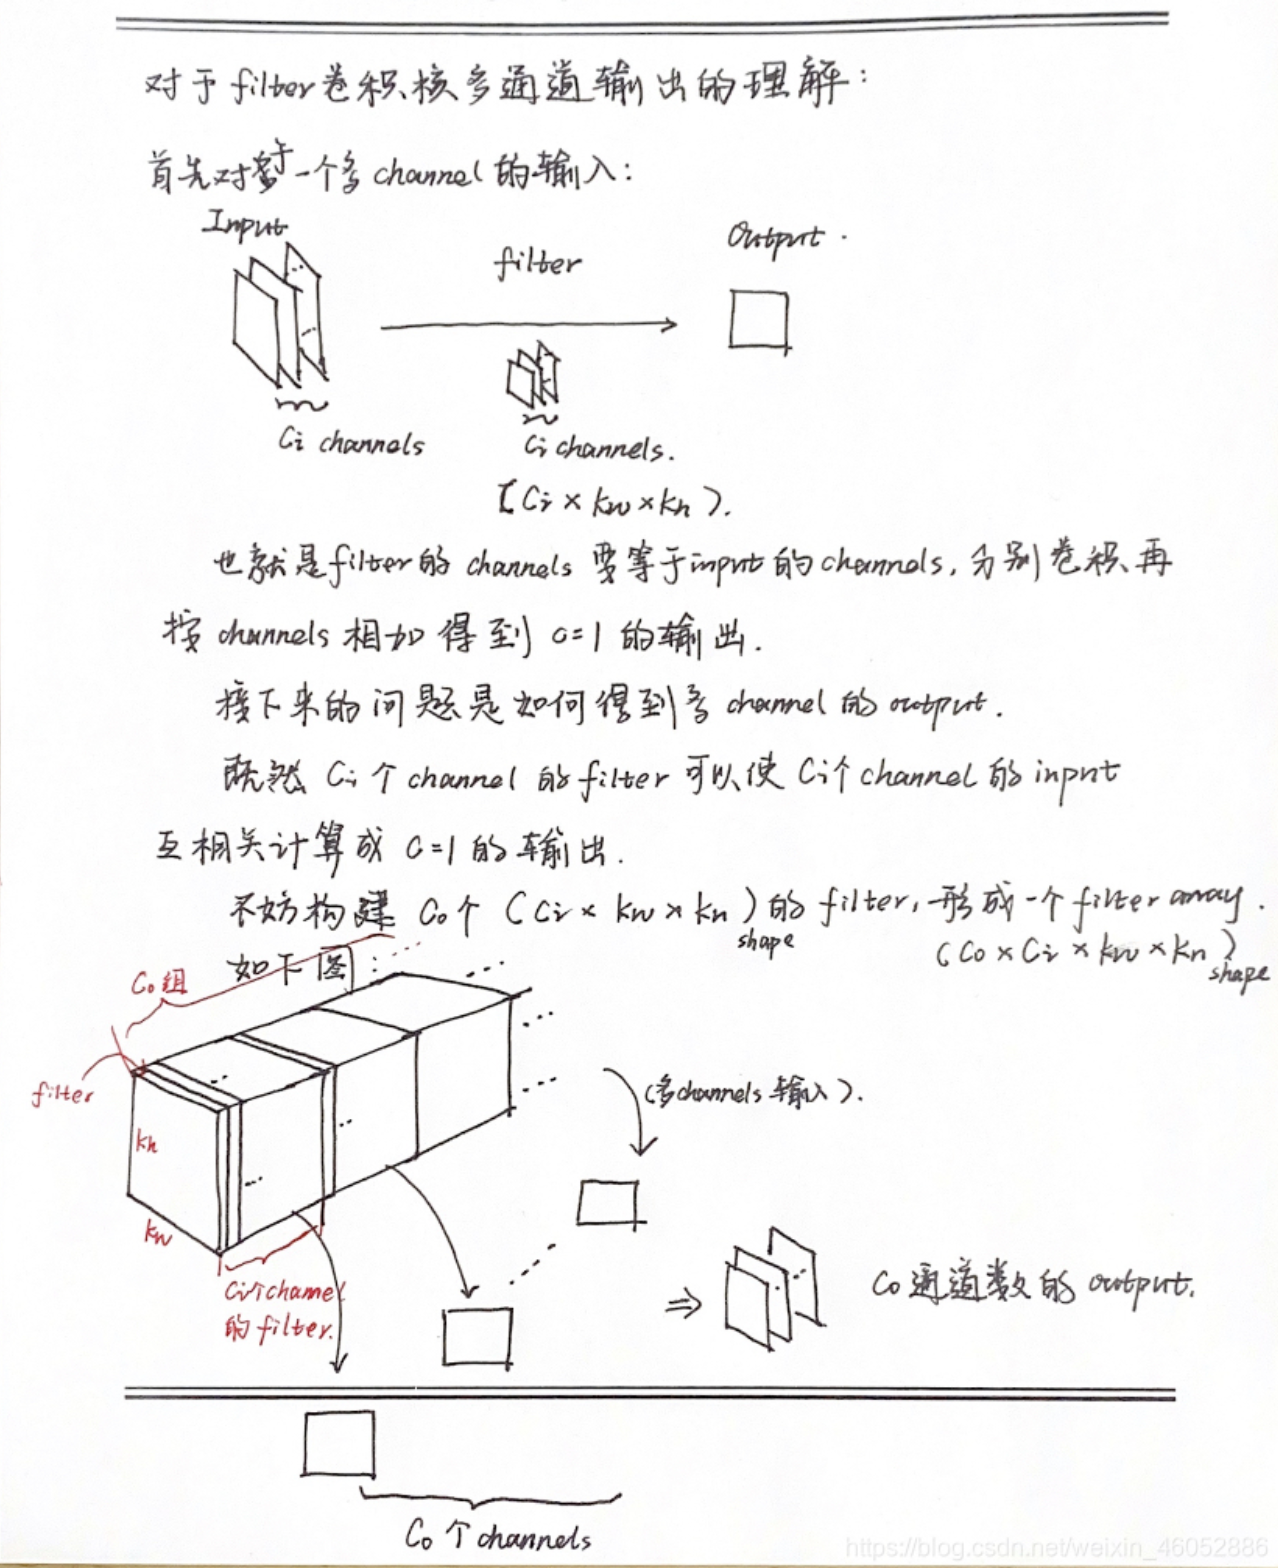 对于filter卷积核多通道输出的理解：
首先对于一个多channel的输入：
Input
filter
Output.
Ci channels
Ci channels.
[Ci × kw × kh).
也就是filter的 channels 要等于input的channels, 分别卷积再
按 channels 相加得到 c=1 的输出.
接下来的问题是如何得到多 channel 的 output.
既然 Ci 个 channel 的 filter 可以使 Ci个 channel 的 input
互相关计算成 c=1 的输出.
不妨构建 Co个 (Ci × kw × kh)shape的 filter, 形成一个 filter array.
如下图: (Co × Ci × kw × kh)shape
Co组
filter
kh
kw
Ci个channel
的 filter.
(多channels 输入).
⇒ Co 通道数的 output.
Co 个 channels
https://blog.csdn.net/weixin_46052886